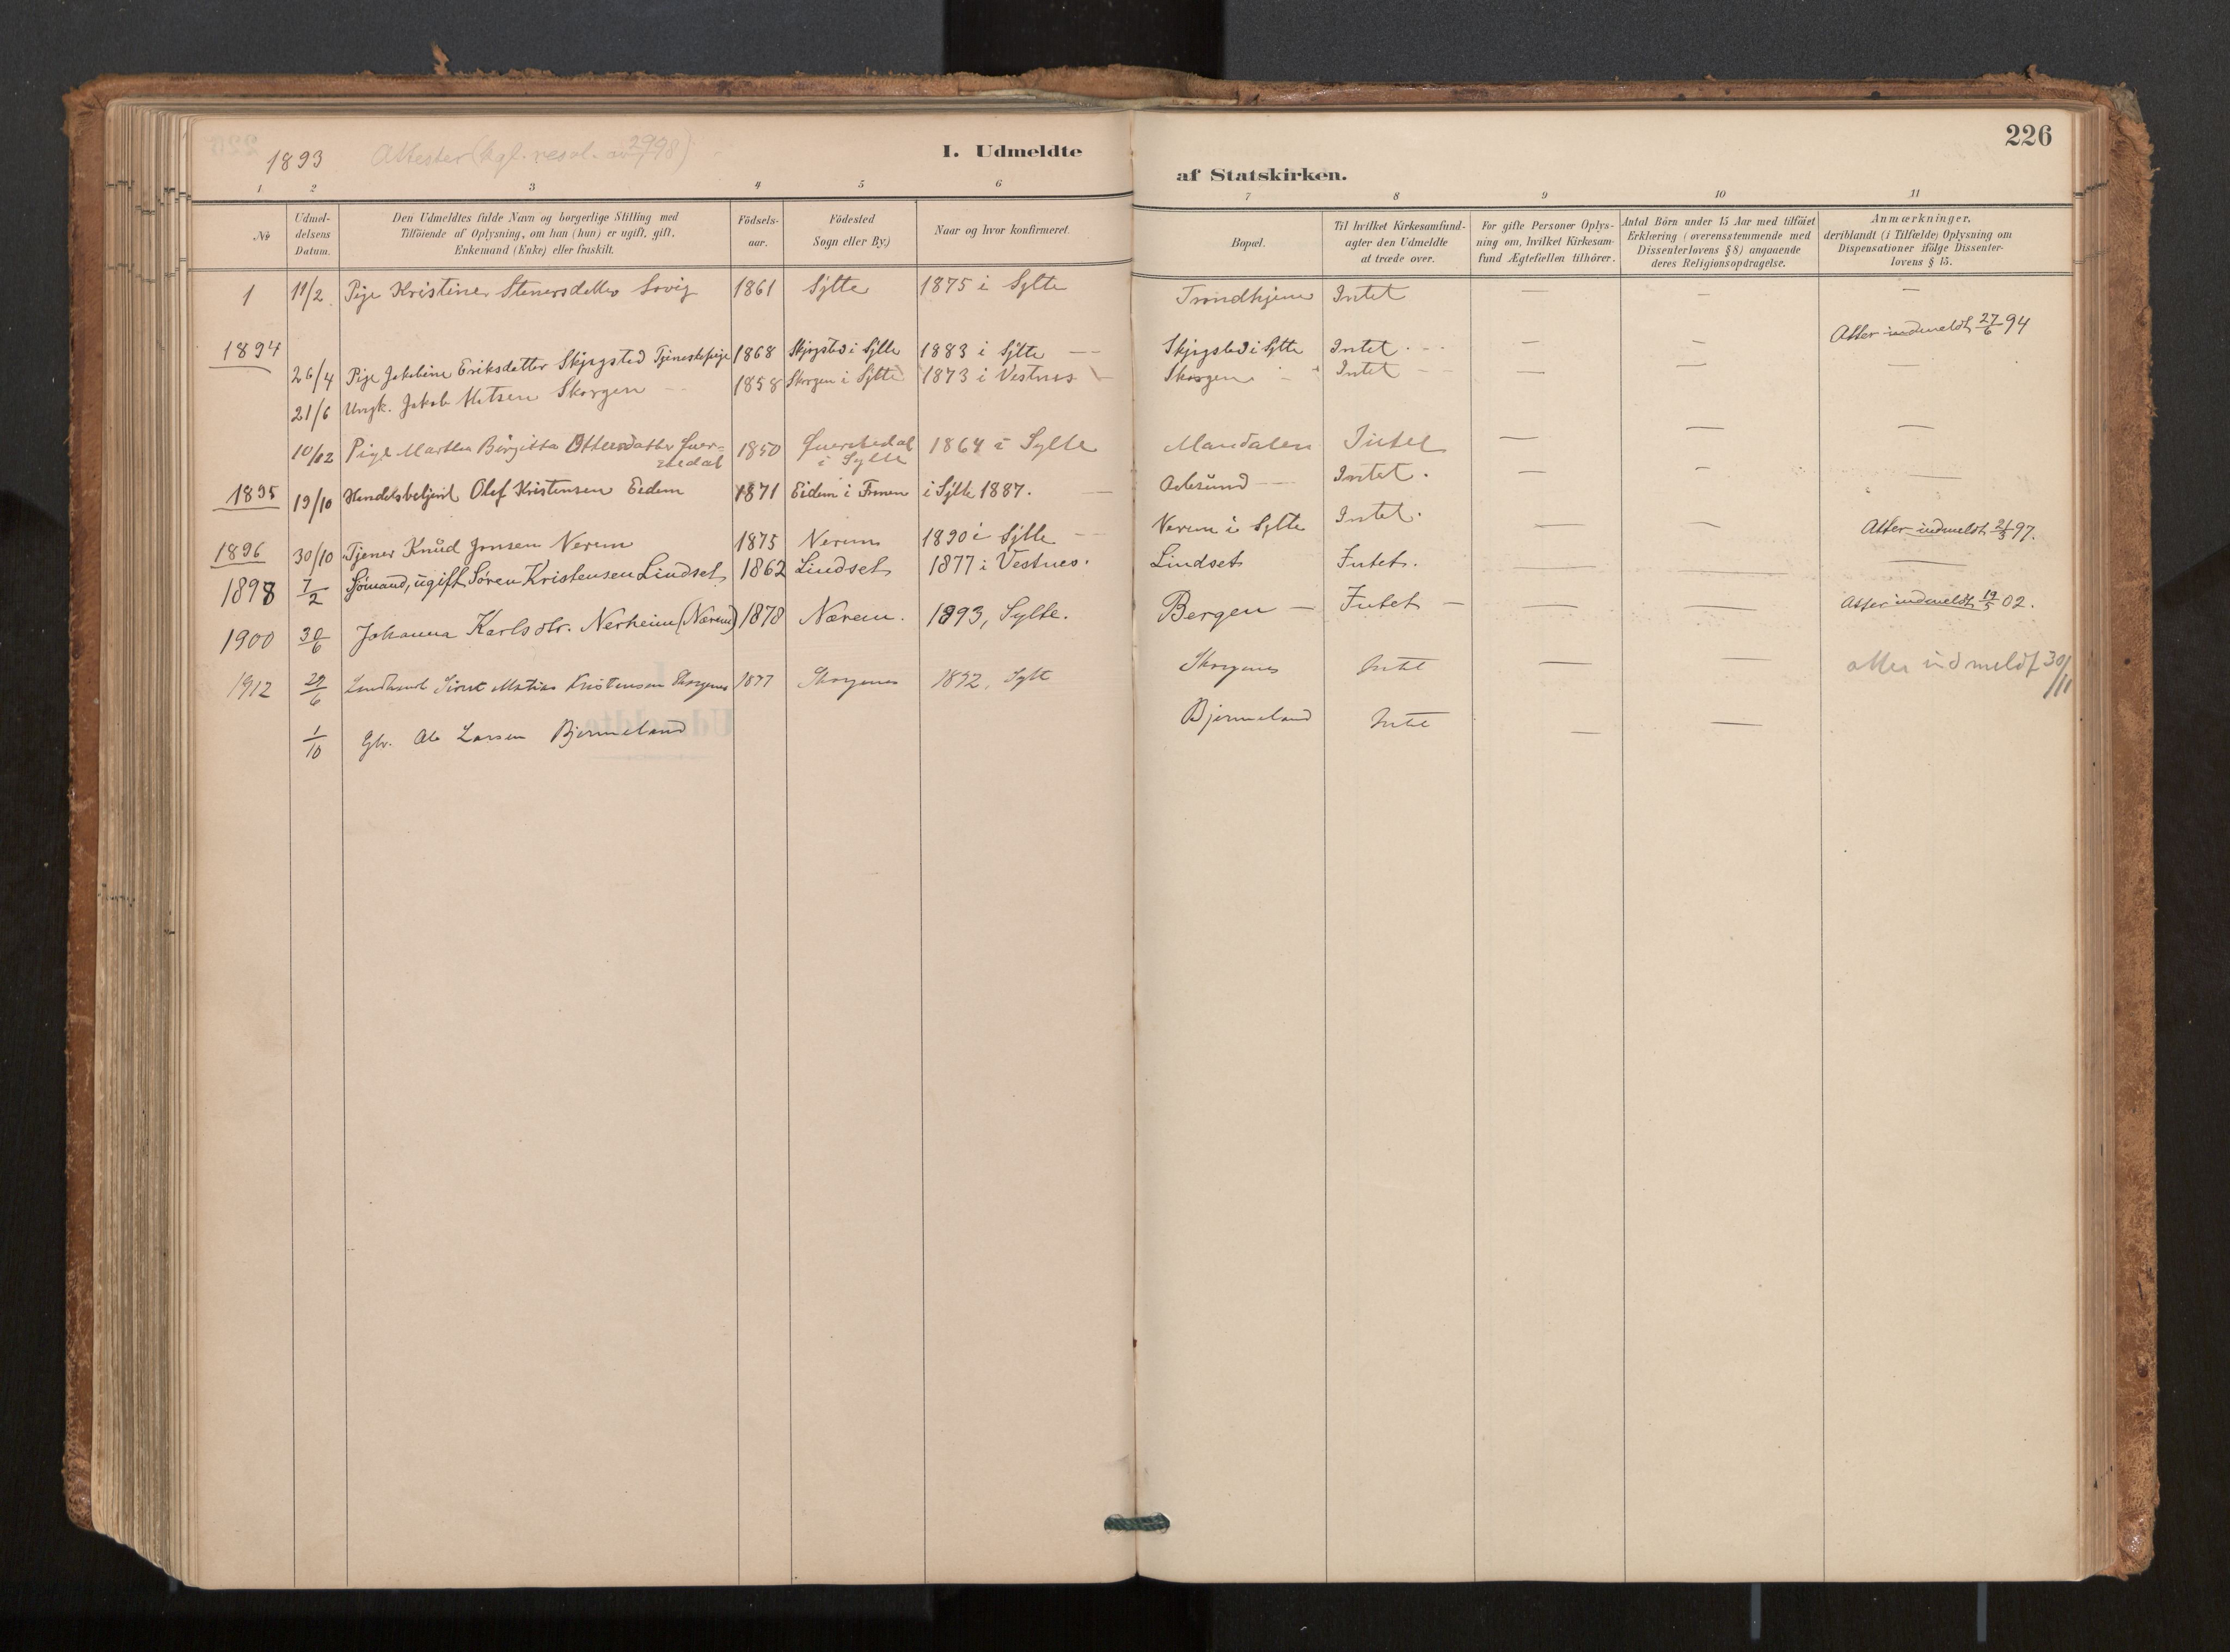 226
1893 Attester (kgl. resol. av 29/7 98)
I. Udmeldte
af Statskirken.
1 2 3 4 5 6 7 8 9 10 11
№
Udmel-
delsens
Datum.
Den Udmeldtes fulde Navn og borgerlige Stilling med
Tilföiende af Oplysning, om han (hun) er ugift, gift,
Enkemand (Enke) eller fraskilt.
Födsels-
aar.
Födested
Sogn eller By.)
Naar og hvor konfirmeret.
Bopæl.
Til hvilket Kirkesamfund-
agter den Udmeldte
at træde over.
For gifte Personer Oplys-
ning om, hvilket Kirkesam-
fund Ægtefællen tilhörer.
Antal Börn under 15 Aar med tilföiet
Erklæring (overensstemmende med
Dissenterlovens § 8) angaaende
deres Religionsopdragelse.
Anmærkninger,
deriblandt (i Tilfælde) Oplysning om
Dispensationer ifölge Dissenter-
lovens § 15.
1 11/2. Pige Kristine Stenersdatter Sovig 1861 Sylte 1875 i Sylte Trondhjem Intet — — —
1894
26/4 Pige Jakobine Eriksdatter Skjegsted Tjenestepige 1868 Skjegsted i Sylte 1883 i Sylte — Skjegsted i Sylte Intet. — — Atter indmeldt 27/6 94
21/6 Ungk. Jakob Matsen Skorgen — 1858 Skorgen i Sylte 1873 i Vestnes Skorgen — Intet — — —
10/12 Pige Martha Birgitta Ottersdatter Hver=
stedal 1850 Hverstedal
i Sylte 1864 i Sylte Mandalen Intet — —
1895 19/10 Handelsbetjent Olef Kristensen Eidem 1871 Eidem i Frænen i Sylte 1887. — Aalesund — Intet. — — —
1896 30/10 Tjener Knud Jonsen Nerem 1875 Nerem 1890 i Sylte — Nerem i Sylte Intet. — — Atter indmeldt 21/3 97.
1898 7/2 Sömand, ugift Sören Kristensen Lindset 1862 Lindset 1877 i Vestnes. Lindset Intet. — — —
1900 30/6 Johanna Karlsdtr. Nerheim (Nærem) 1878 Nærem. 1893, Sylte. Bergen — Intet — — — Atter indmeldt 19/5 02.
1912 29/6 Matias Kristensen Skorgenes 1877 Skorgenes 1892, Sylt Skorgenes Intet — — atter indmeldt 30/11
1/10 Gbr. Ole Larsen Bjermeland Bjermeland Intet — —